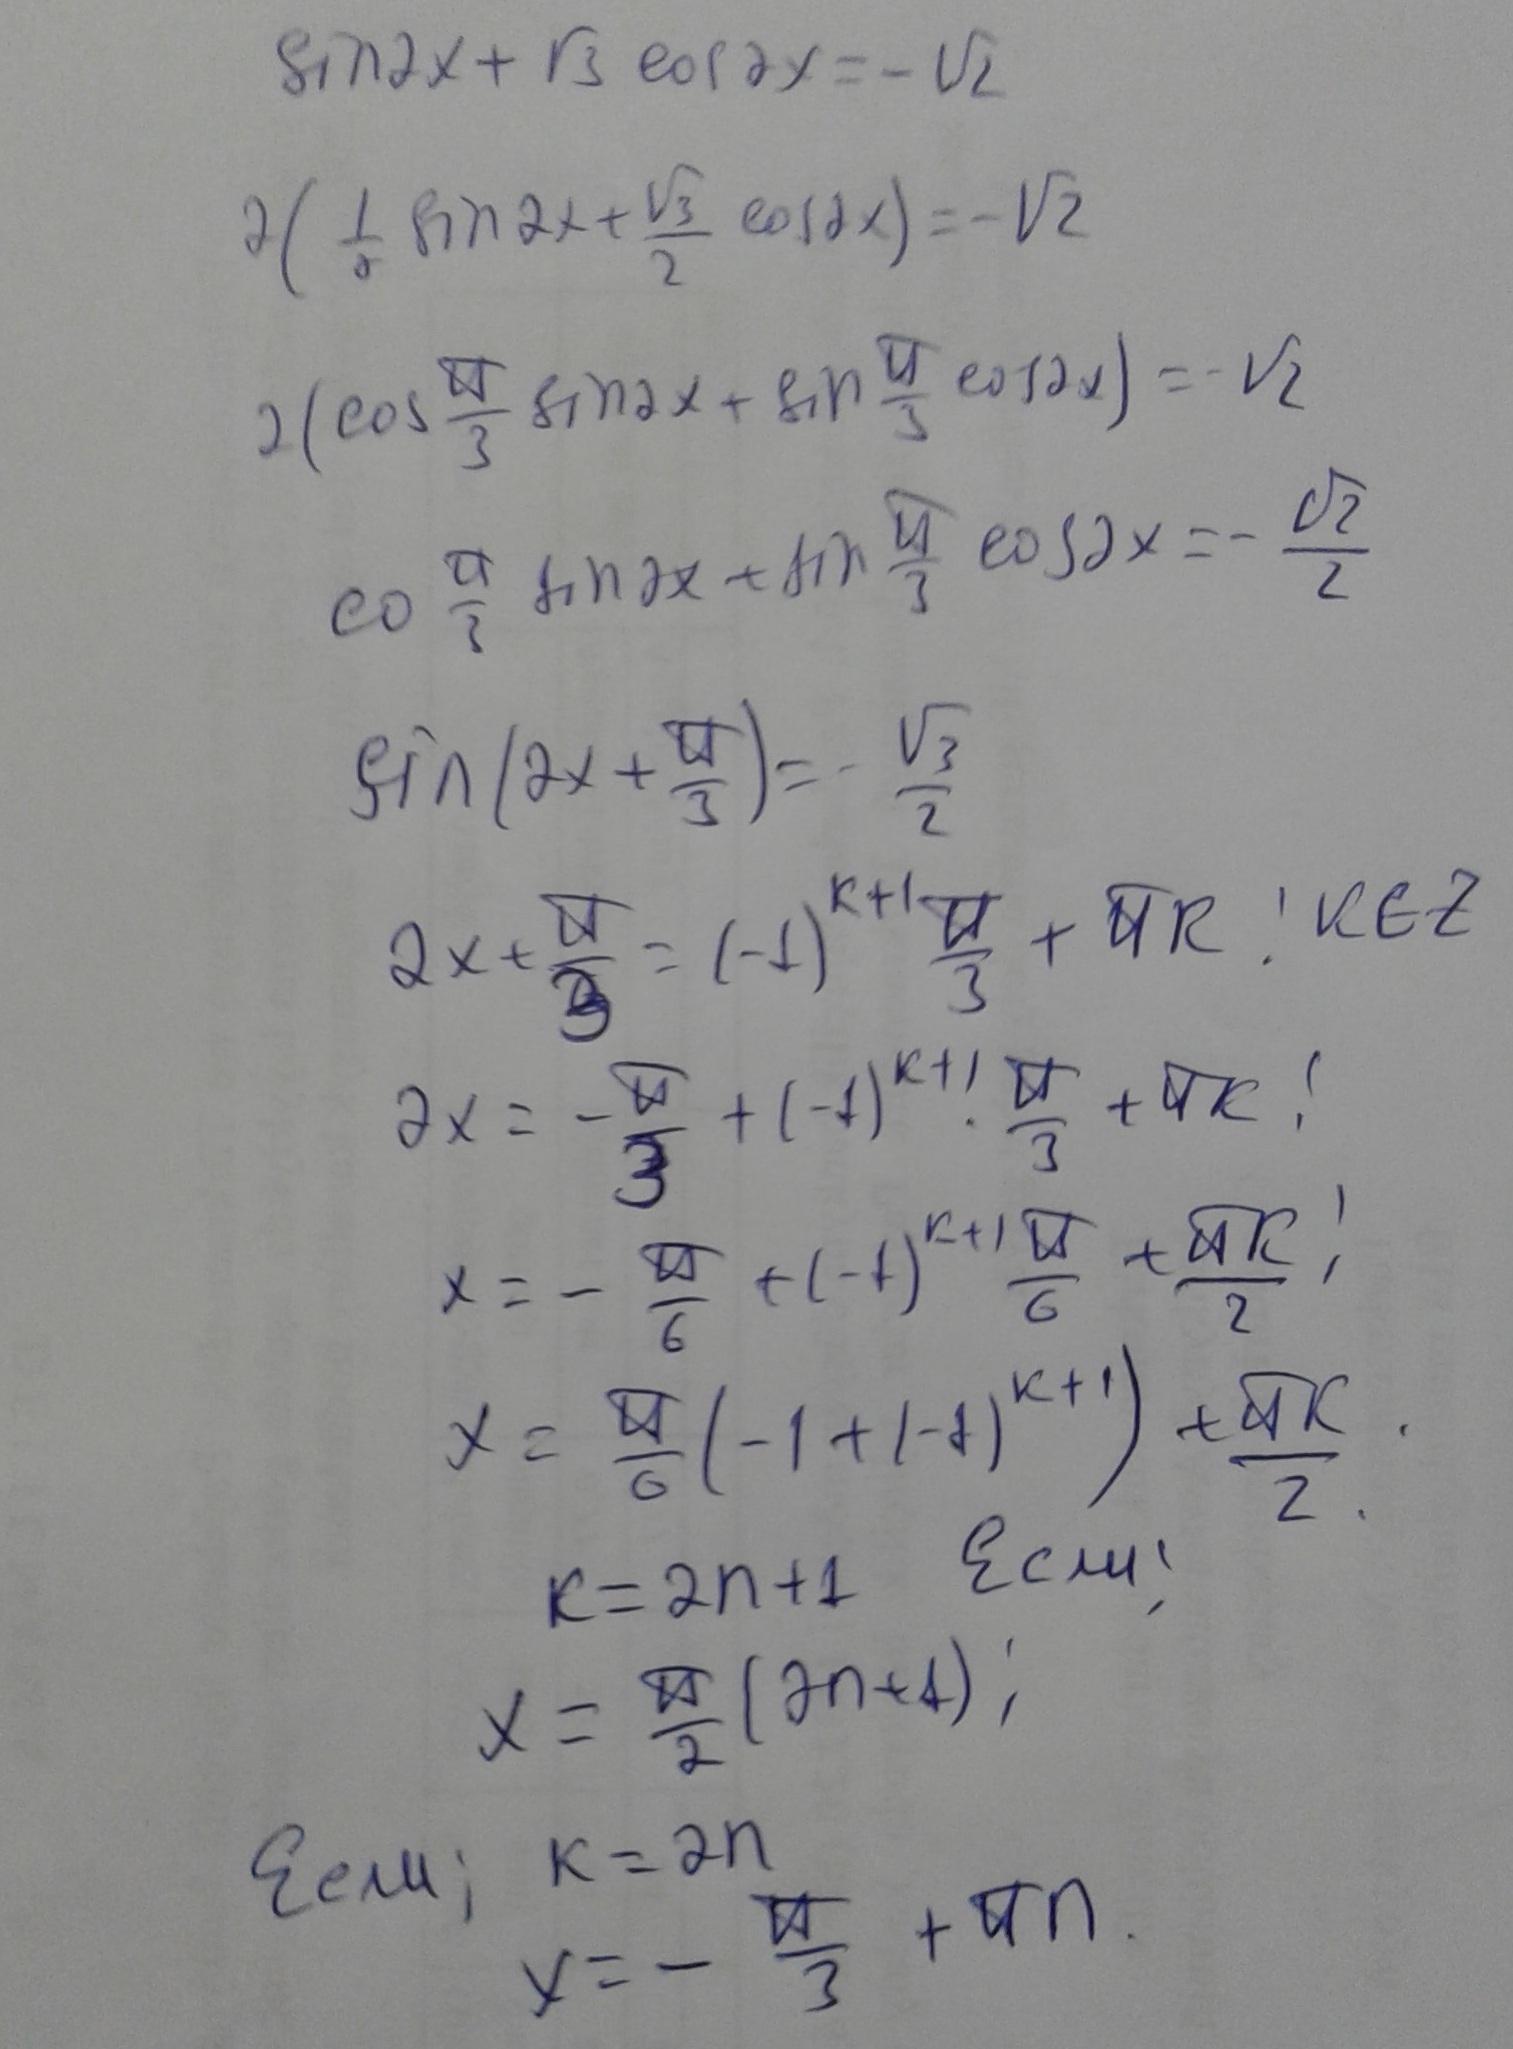 sin2x + √3 cos2x = -√2
2(1/2 sin2x + √3/2 cos2x) = -√2
2(cos π/3 sin2x + sin π/3 cos2x) = -√2
co π/3 sin2x + sin π/3 cos2x = - √2/2
sin(2x + π/3) = - √3/2
2x + π/3 = (-1)^(k+1) π/3 + πk; k∈Z
2x = - π/3 + (-1)^(k+1) · π/3 + πk;
x = - π/6 + (-1)^(k+1) π/6 + πk/2;
x = π/6 (-1 + (-1)^(k+1)) + πk/2.
k = 2n+1 Если;
x = π/2 (2n+1);
Если; k = 2n
x = - π/3 + πn.